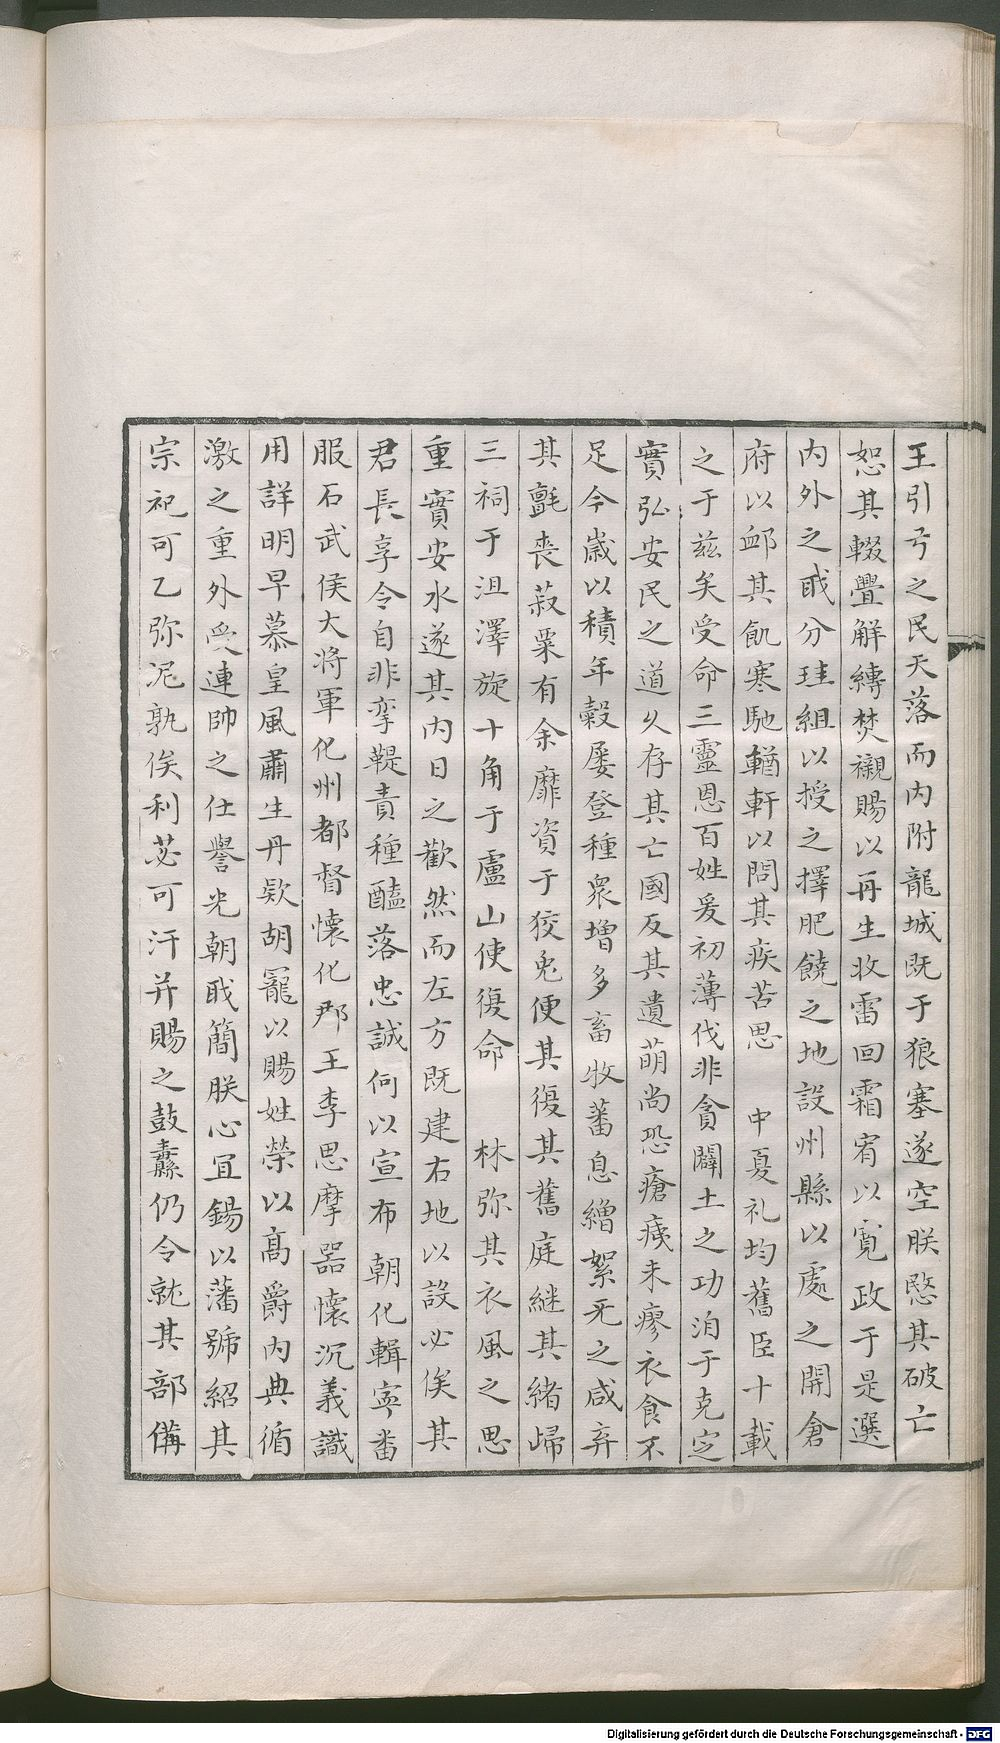 王引弓之民天落而内附龍城既于狼塞遂空朕愍其破亡
恕其輟舋解縛焚襯賜以再生收雷回霜宥以寛政于是選
内外之戚分珪組以授之擇肥饒之地設州縣以處之開倉
府以䘏其飢寒馳輶軒以問其疾苦思 中夏礼均舊臣十載
之于兹矣受命三靈恩百姓爰初薄伐非貪闢土之功洎于克定
實弘安民之道乆存其亡國反其遺萌尚恐瘡痍未瘳衣食不
足今嵗以積年穀屡登種衆增多畜牧蕃息繒絮无之咸弃
其氈裘菽粟有余靡資于狡兎便其復其舊庭継其緒歸
三祠于沮澤旋十角于盧山使復命 林弥其衣風之思
重實安水遂其内日之歡然而左方既建右地以設必俟其
君長享令自非孪鞮貴種醘落忠誠何以宣布 朝化輯寜畨
服石武侯大将軍化州都督懐化郡王李思摩器懐沉義識
用詳明早慕皇風肅生丹欵胡寵以賜姓榮以髙爵内典循
激之重外受連帥之仕譽光朝戚簡朕心冝錫以藩號紹其
宗祀可乙弥泥孰俟利苾可汗并賜之鼓纛仍令就其部備
Digitalisierung gefördert durch die Deutsche Forschungsgemeinschaft - DFG